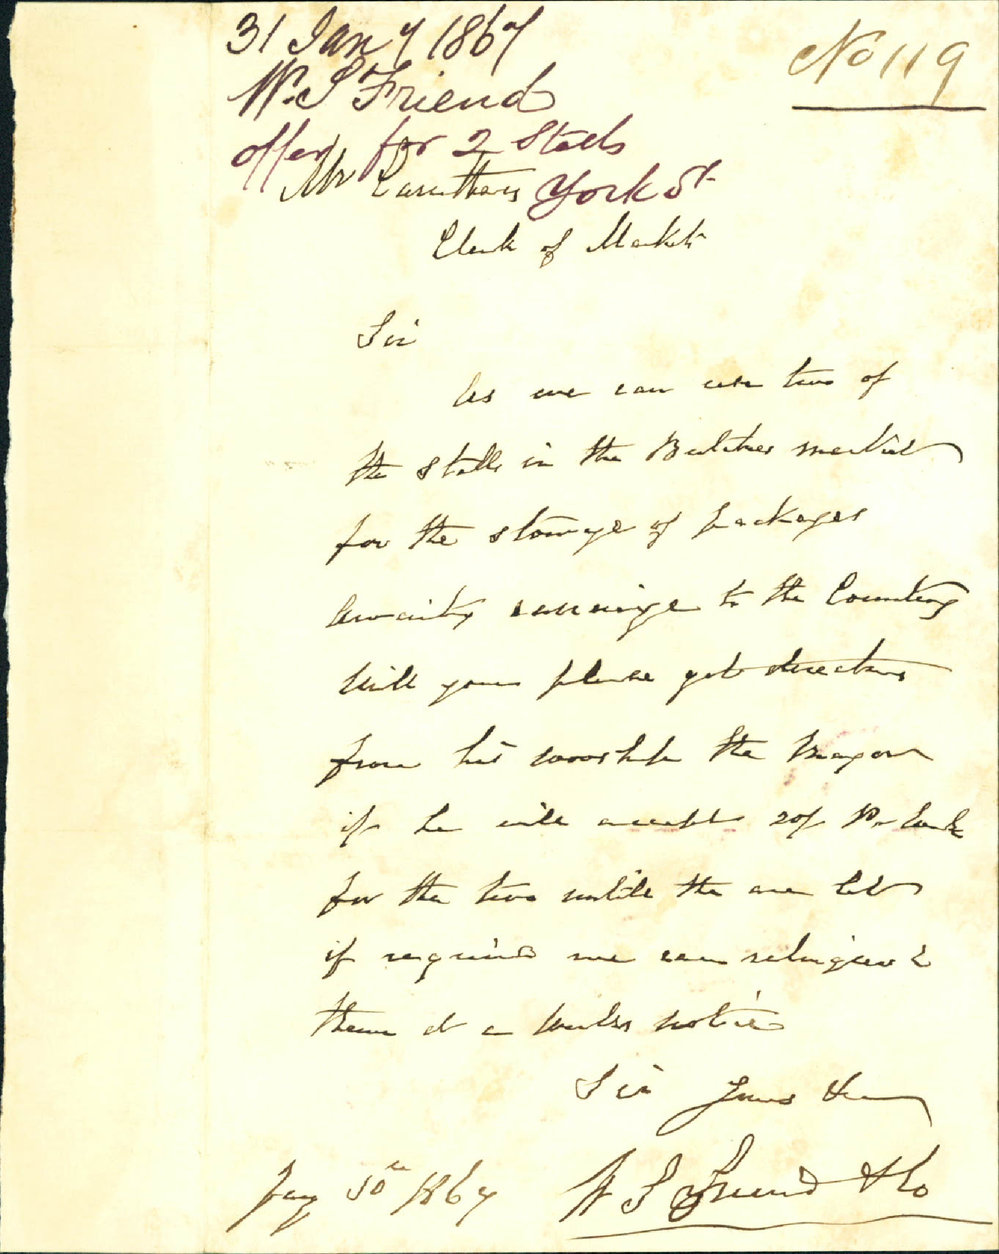 31 Jany 1867
No 119
W. S Friend
offer for 2 Stalls
York St
Mr Caruthers
Clerk of Markets
Sir
As we can use two of
the stalls in the Butcher market
for the stowage of packages
awaiting carriage to the Country
Will you please get directions
from his worship the Mayor
if he will accept 20/ Pr Week
for the two untill the are let
if required we can relinquish
them at a weeks notice
Sir Yours
W S Friend & Co
Jany 30th 1867